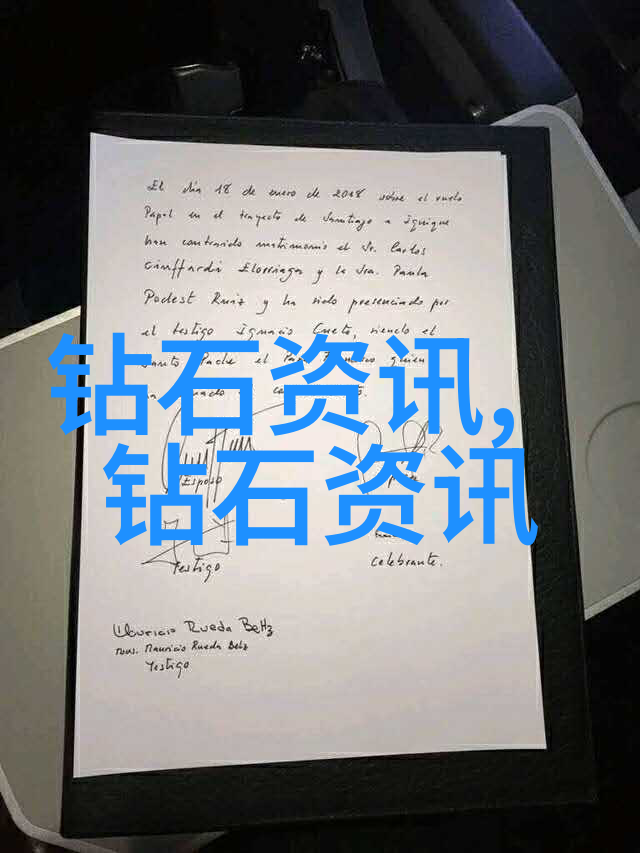 El día 18 de enero de 2018 sobre el vuelo
Papal en el trayecto de Santiago a Iquique
han contraido matrimonio el Sr. Carlos
Ciuffardi Elorriaga y la Sra. Paula
Podest Ruiz y ha sido presenciado por
el testigo Ignacio Cueto, siendo el
Santo Padre el Papa quien
钻石资讯,
钻石资讯
Esposo
Testigo
Celebrante.
Mauricio Rueda Beltz
Mons. Mauricio Rueda Beltz
Testigo